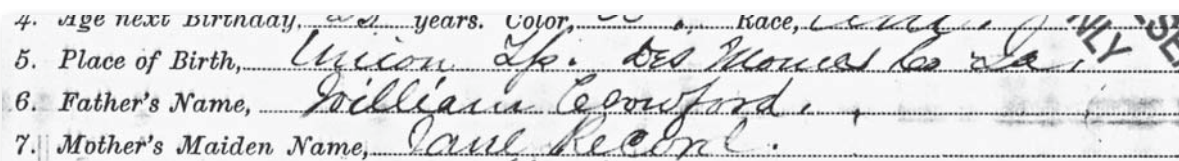 4. Age next Birthday, years. Color, Race,
5. Place of Birth, Union Tp. Des Moines Co Ia.
6. Father's Name, William Crawford.
7. Mother's Maiden Name, Jane Record.